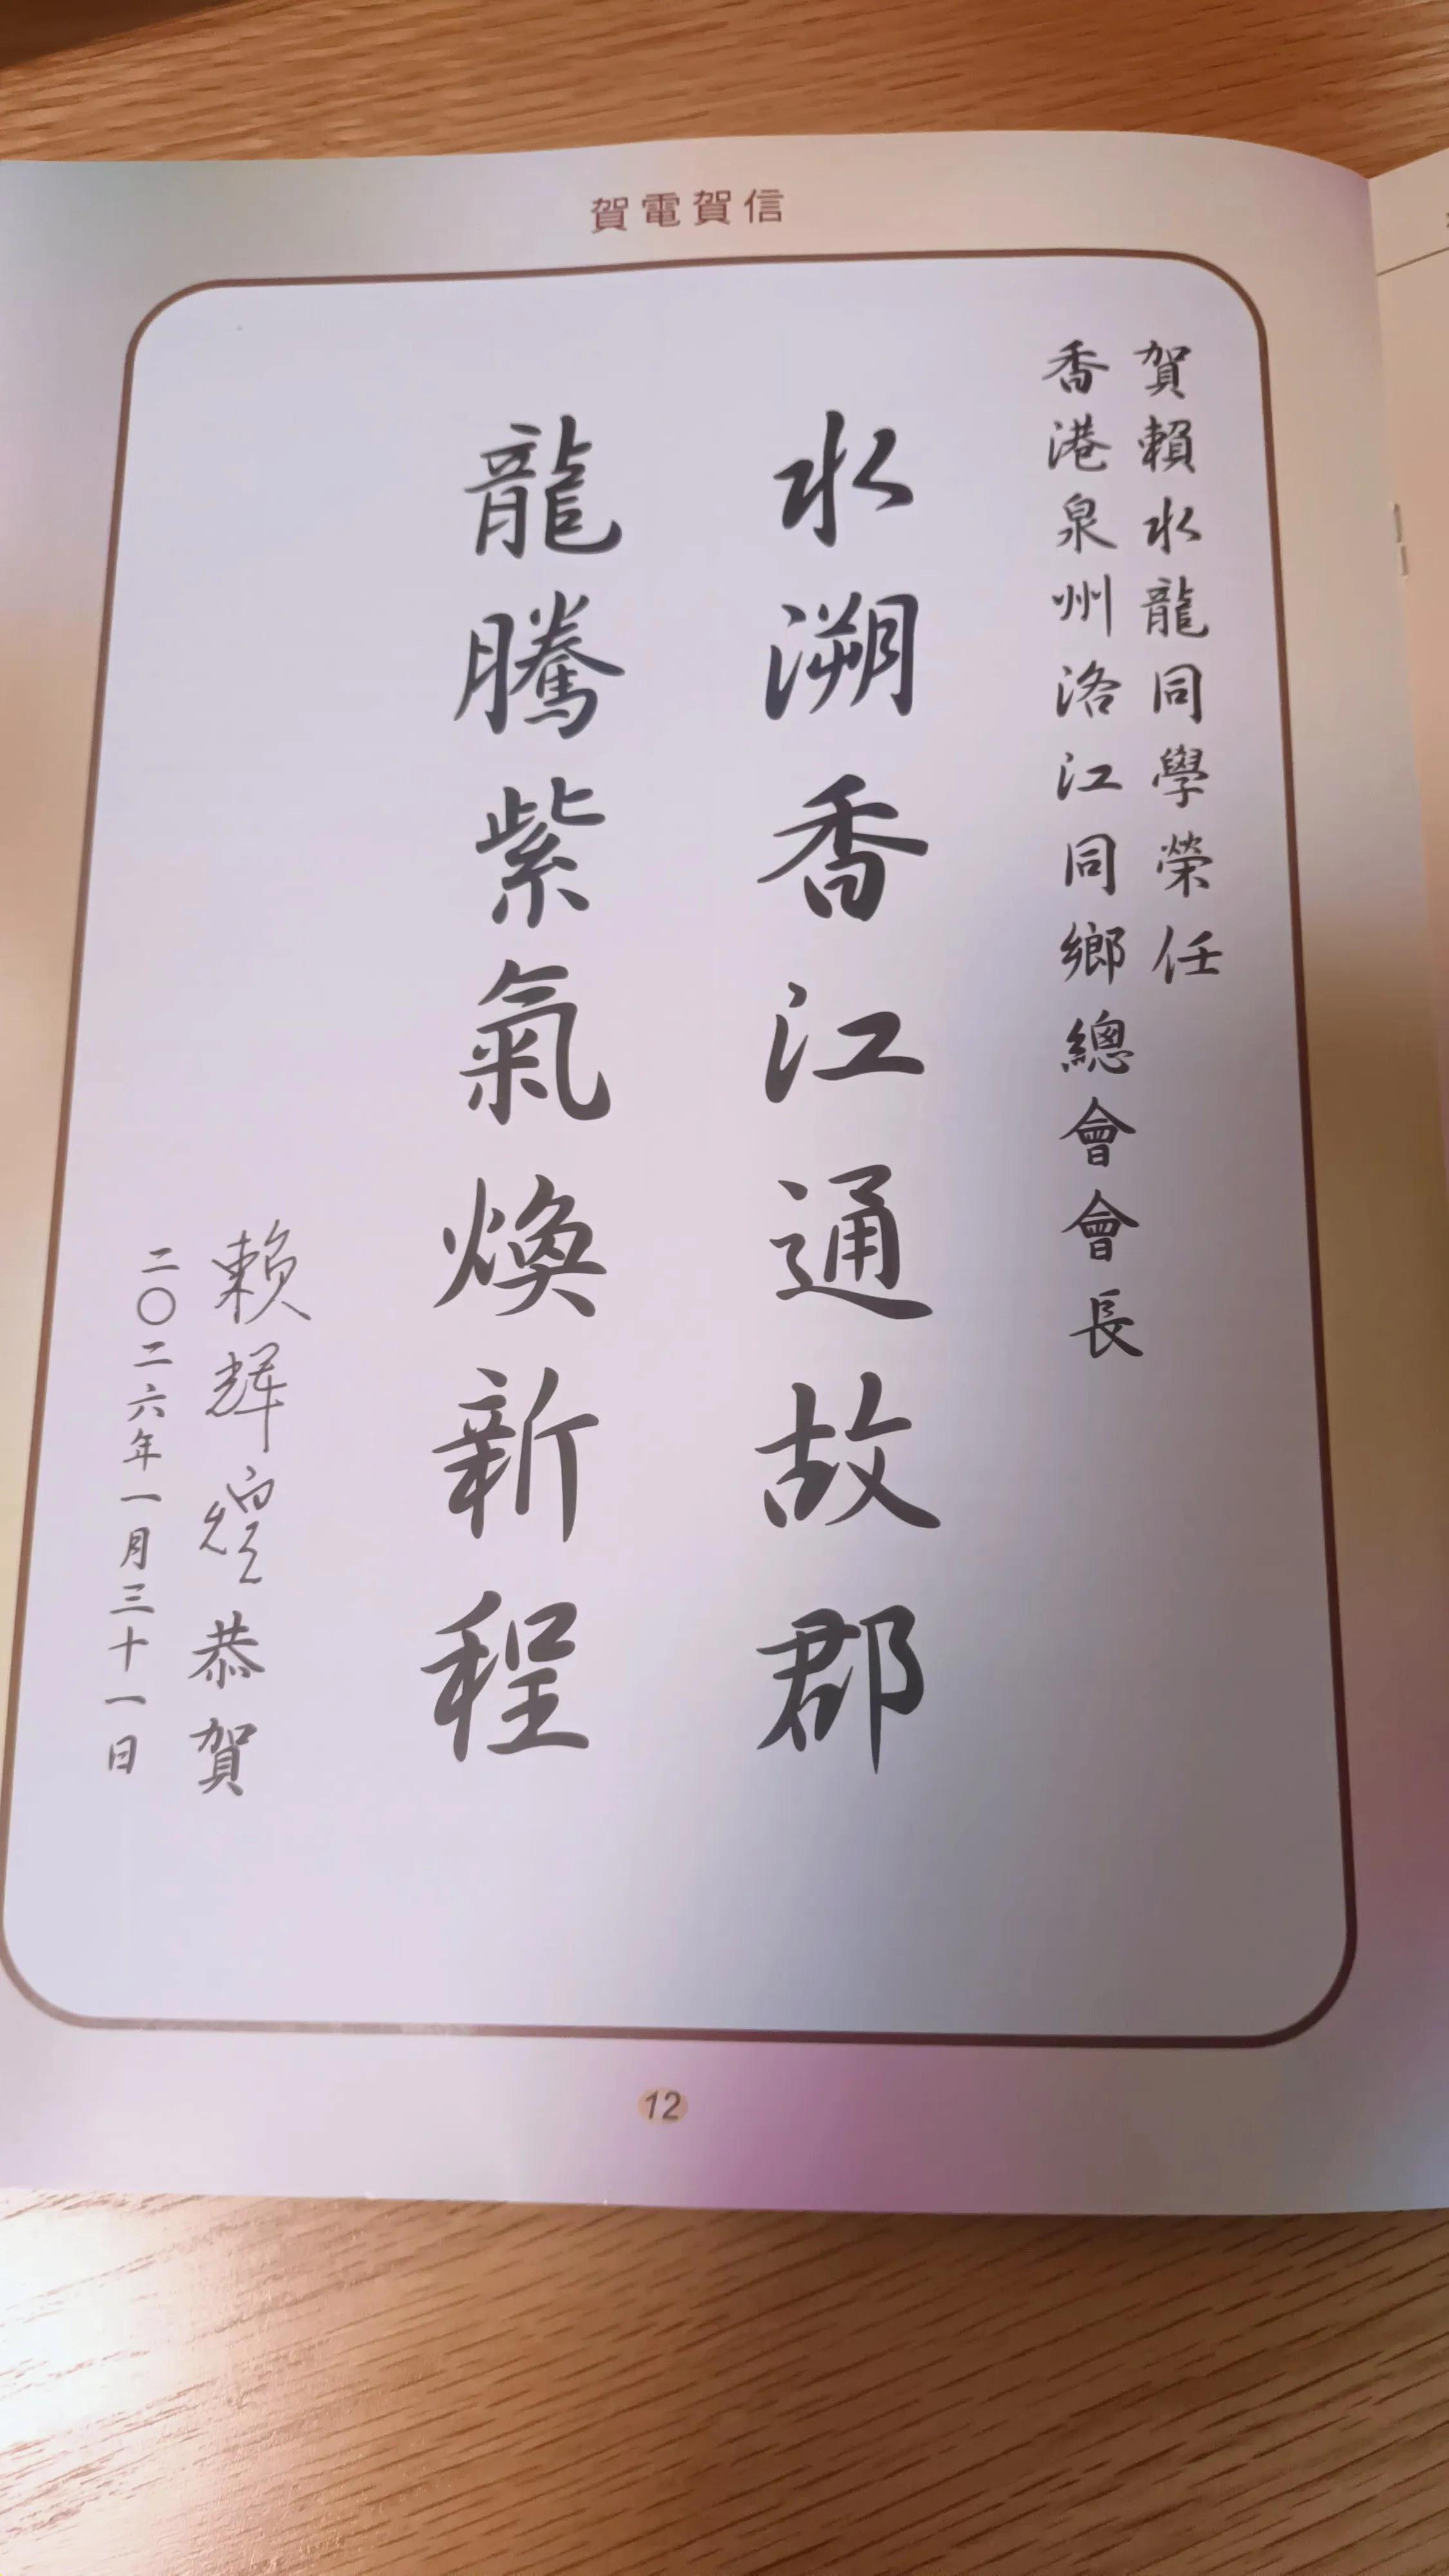 賀電賀信
賀賴水龍同學榮任
香港泉州洛江同鄉總會會長
水溯香江通故郡
龍騰紫氣煥新程
賴輝煌恭賀
二〇二六年一月三十一日
12